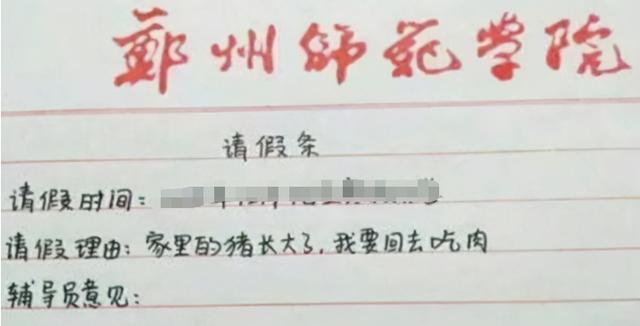 鄭州师范学院
请假条
请假时间：
请假理由：家里的猪长大了，我要回去吃肉
辅导员意见：